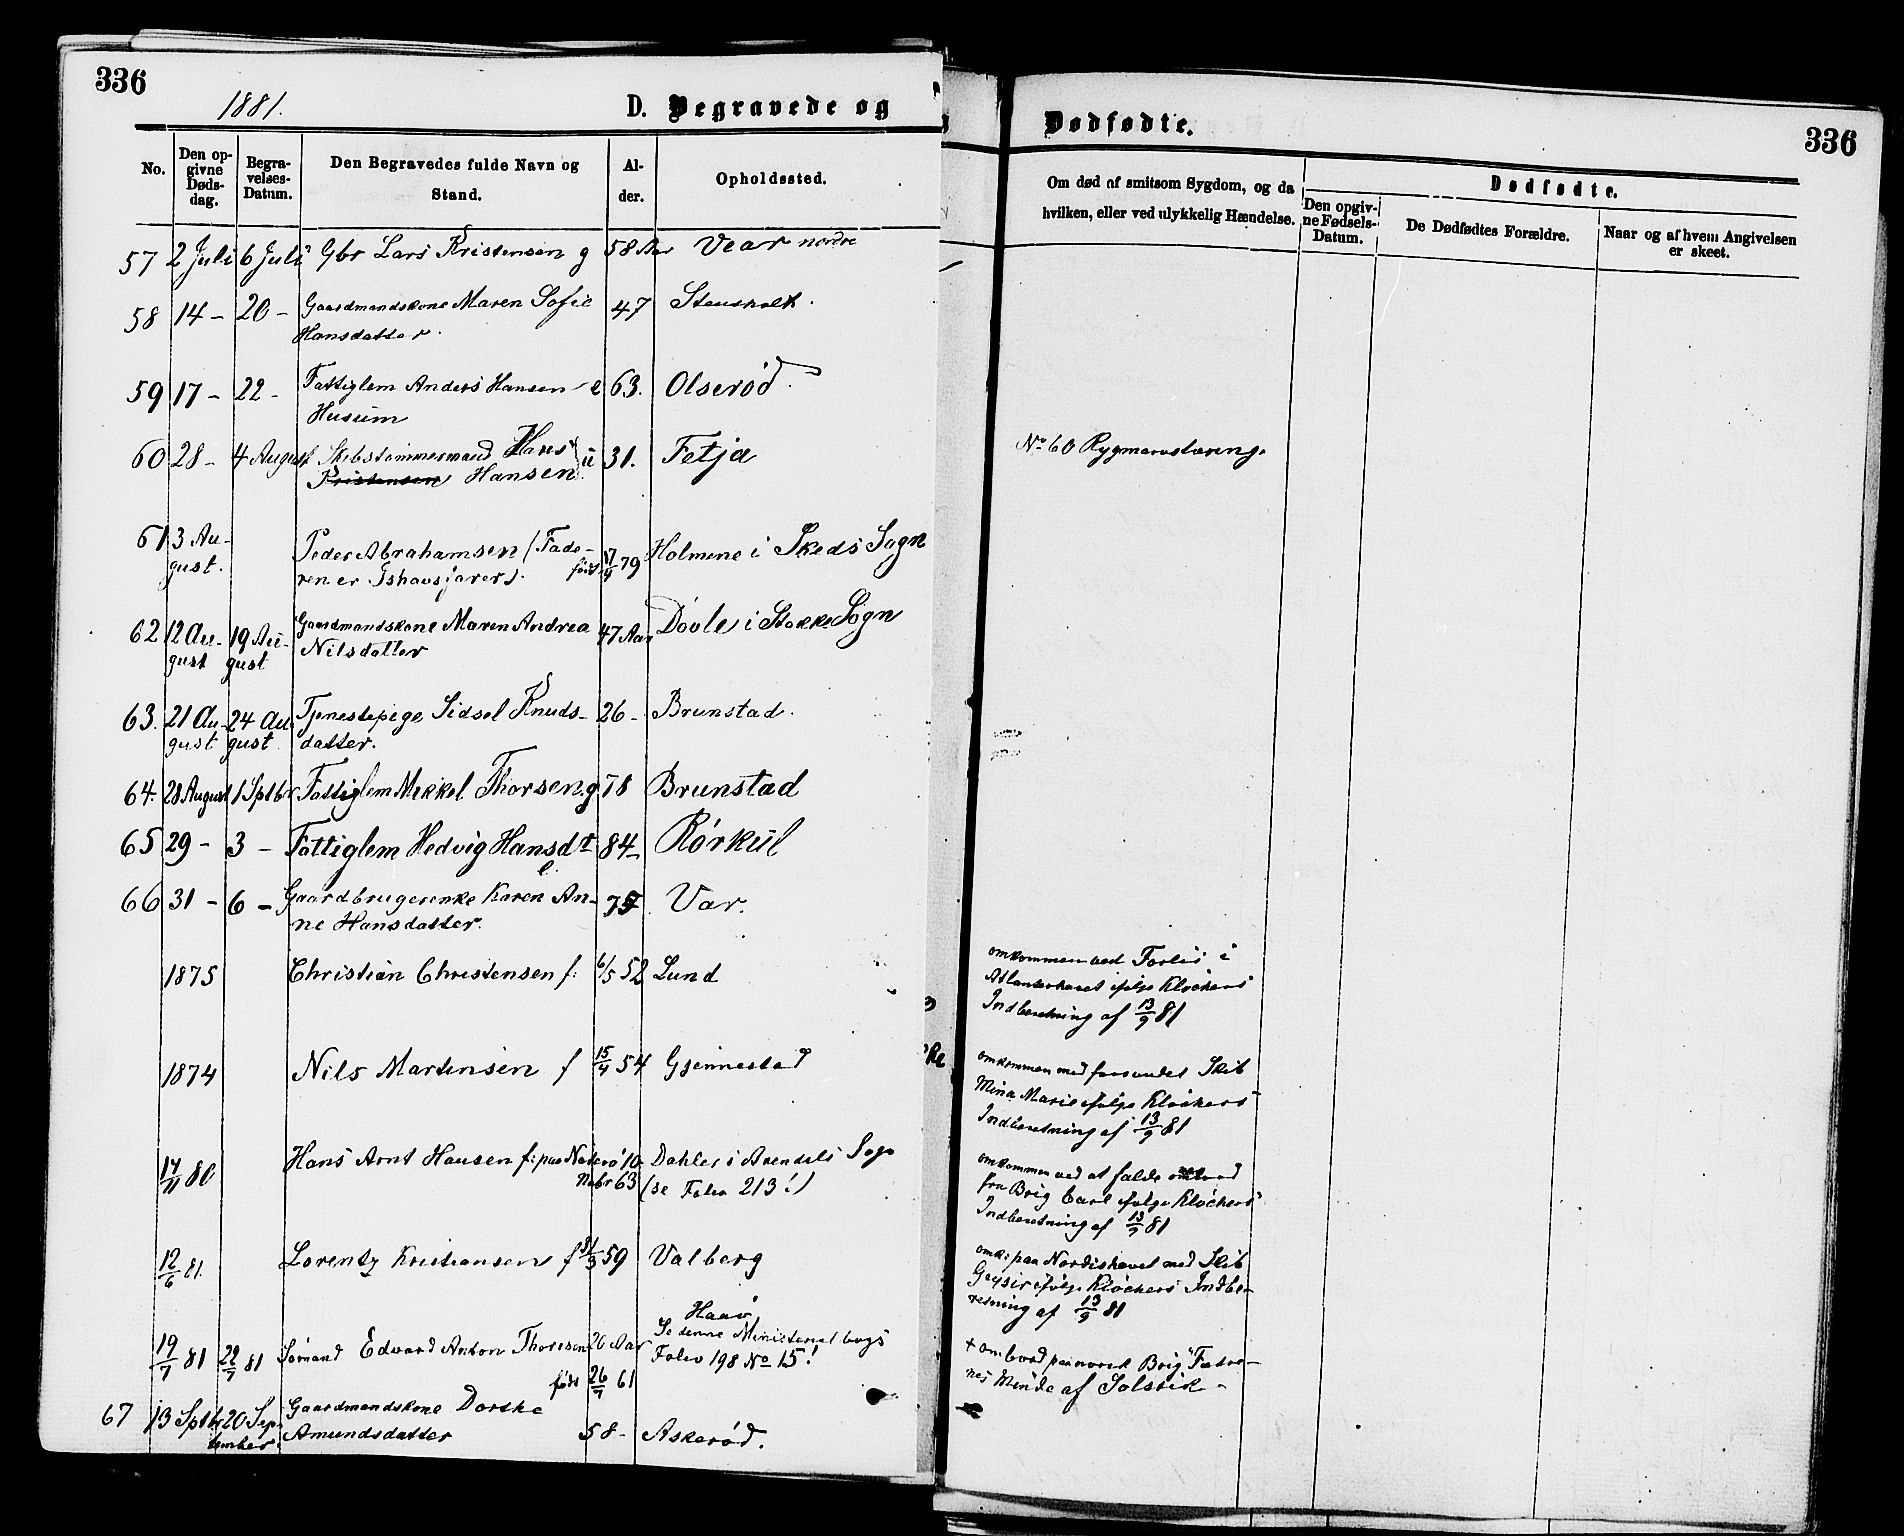 336
1881.
D. Begravede og
No.
Den op-
givne
Døds-
dag.
Begra-
velses-
Datum.
Den Begravedes fulde Navn og
Stand.
Al-
der.
Opholdssted.
57 2 Juli 6 Juli Gbr Lars Kristensen g 58 Aar Vear nordre
58 14 - 20 - Gaardmandskone Maren Sofie 47 Stensholt.
Hansdatter.
59 17 - 22 - Fattiglem Anders Hansen e 63. Olserød.
Husum
60 28 - 4 August Skibstømmermand Hans ü 31. Fetja
Kristensen Hansen
61 3 Au- Peder Abrahamsen (Fade- 17/4 79 Holmene i Skeds Sogn
gust. ren er Ishavsfarer). født
62 12 Au- 19 Au- Gaardmandskone Maren Andrea 47 Aar Døvle i Stokke Sogn
gust gust Nilsdatter
63. 21 Au- 24 Au Tjenestepige Sidsel Knuds- 26 - Brunstad.
gust gust datter.
64. 28 August 1 Sptbr Fattiglem Mikkel Thorsen g 78 Brunstad
65 29 - 3 - Fattiglem Hedvig Hansdt 84 - Rørkul
e
66 31 - 6 - Gaardbrugerenke Karen An- 75. Var.
ne Hansdatter.
1875 Christian Christensen f: 6/5 52 Lund
1874 Nils Martinsen f 15/4 54 Gjennestad
14/11 80 Hans Arnt Hansen f: paa Nøterø 10 Dahler i Arendals Sogn
Nobr 63 (se Folio 213!)
12/6 81. Lorentz Kristiansen f 31/3 59 Valberg
Haaø
19/7 81 29/7 81 Sømand Edward Anton Thoresen 20 Aar Se denne Ministerialbogs
Folio 198 No 15!
født 26/7 61
67 13 Sptbr 20 Sep- Gaardmandskone Dorthe
tember Amundsdatter 58 - Askerød.
Dødfødte.
336
Om død af smitsom Sygdom, og da
hvilken, eller ved ulykkelig Hændelse.
Dødfødte.
Den opgiv-
ne Fødsels-
Datum.
De Dødfødtes Forældre.
Naar og af hvem Angivelsen
er skeet.
No 60 Rygmarvstæring.
omkommen ved Forlis i
Atlanterhavet ifølge Kløckers
Indberetning af 13/9 81
omkommen med forsvundet Skib
Mina Marie ifølge Kløckers
Indberetning af 13/9 81
omkommen ved at falde ombord
fra Brig Carl ifølge Kløckers
Indberetning af 13/9 81
omk: paa Nordishavet med Skib
Geysir ifølge Kløckers Indbe-
retning af 13/9 81
+ ombord paa norsk Brig "Fædre-
nes Minde" af Solstik -